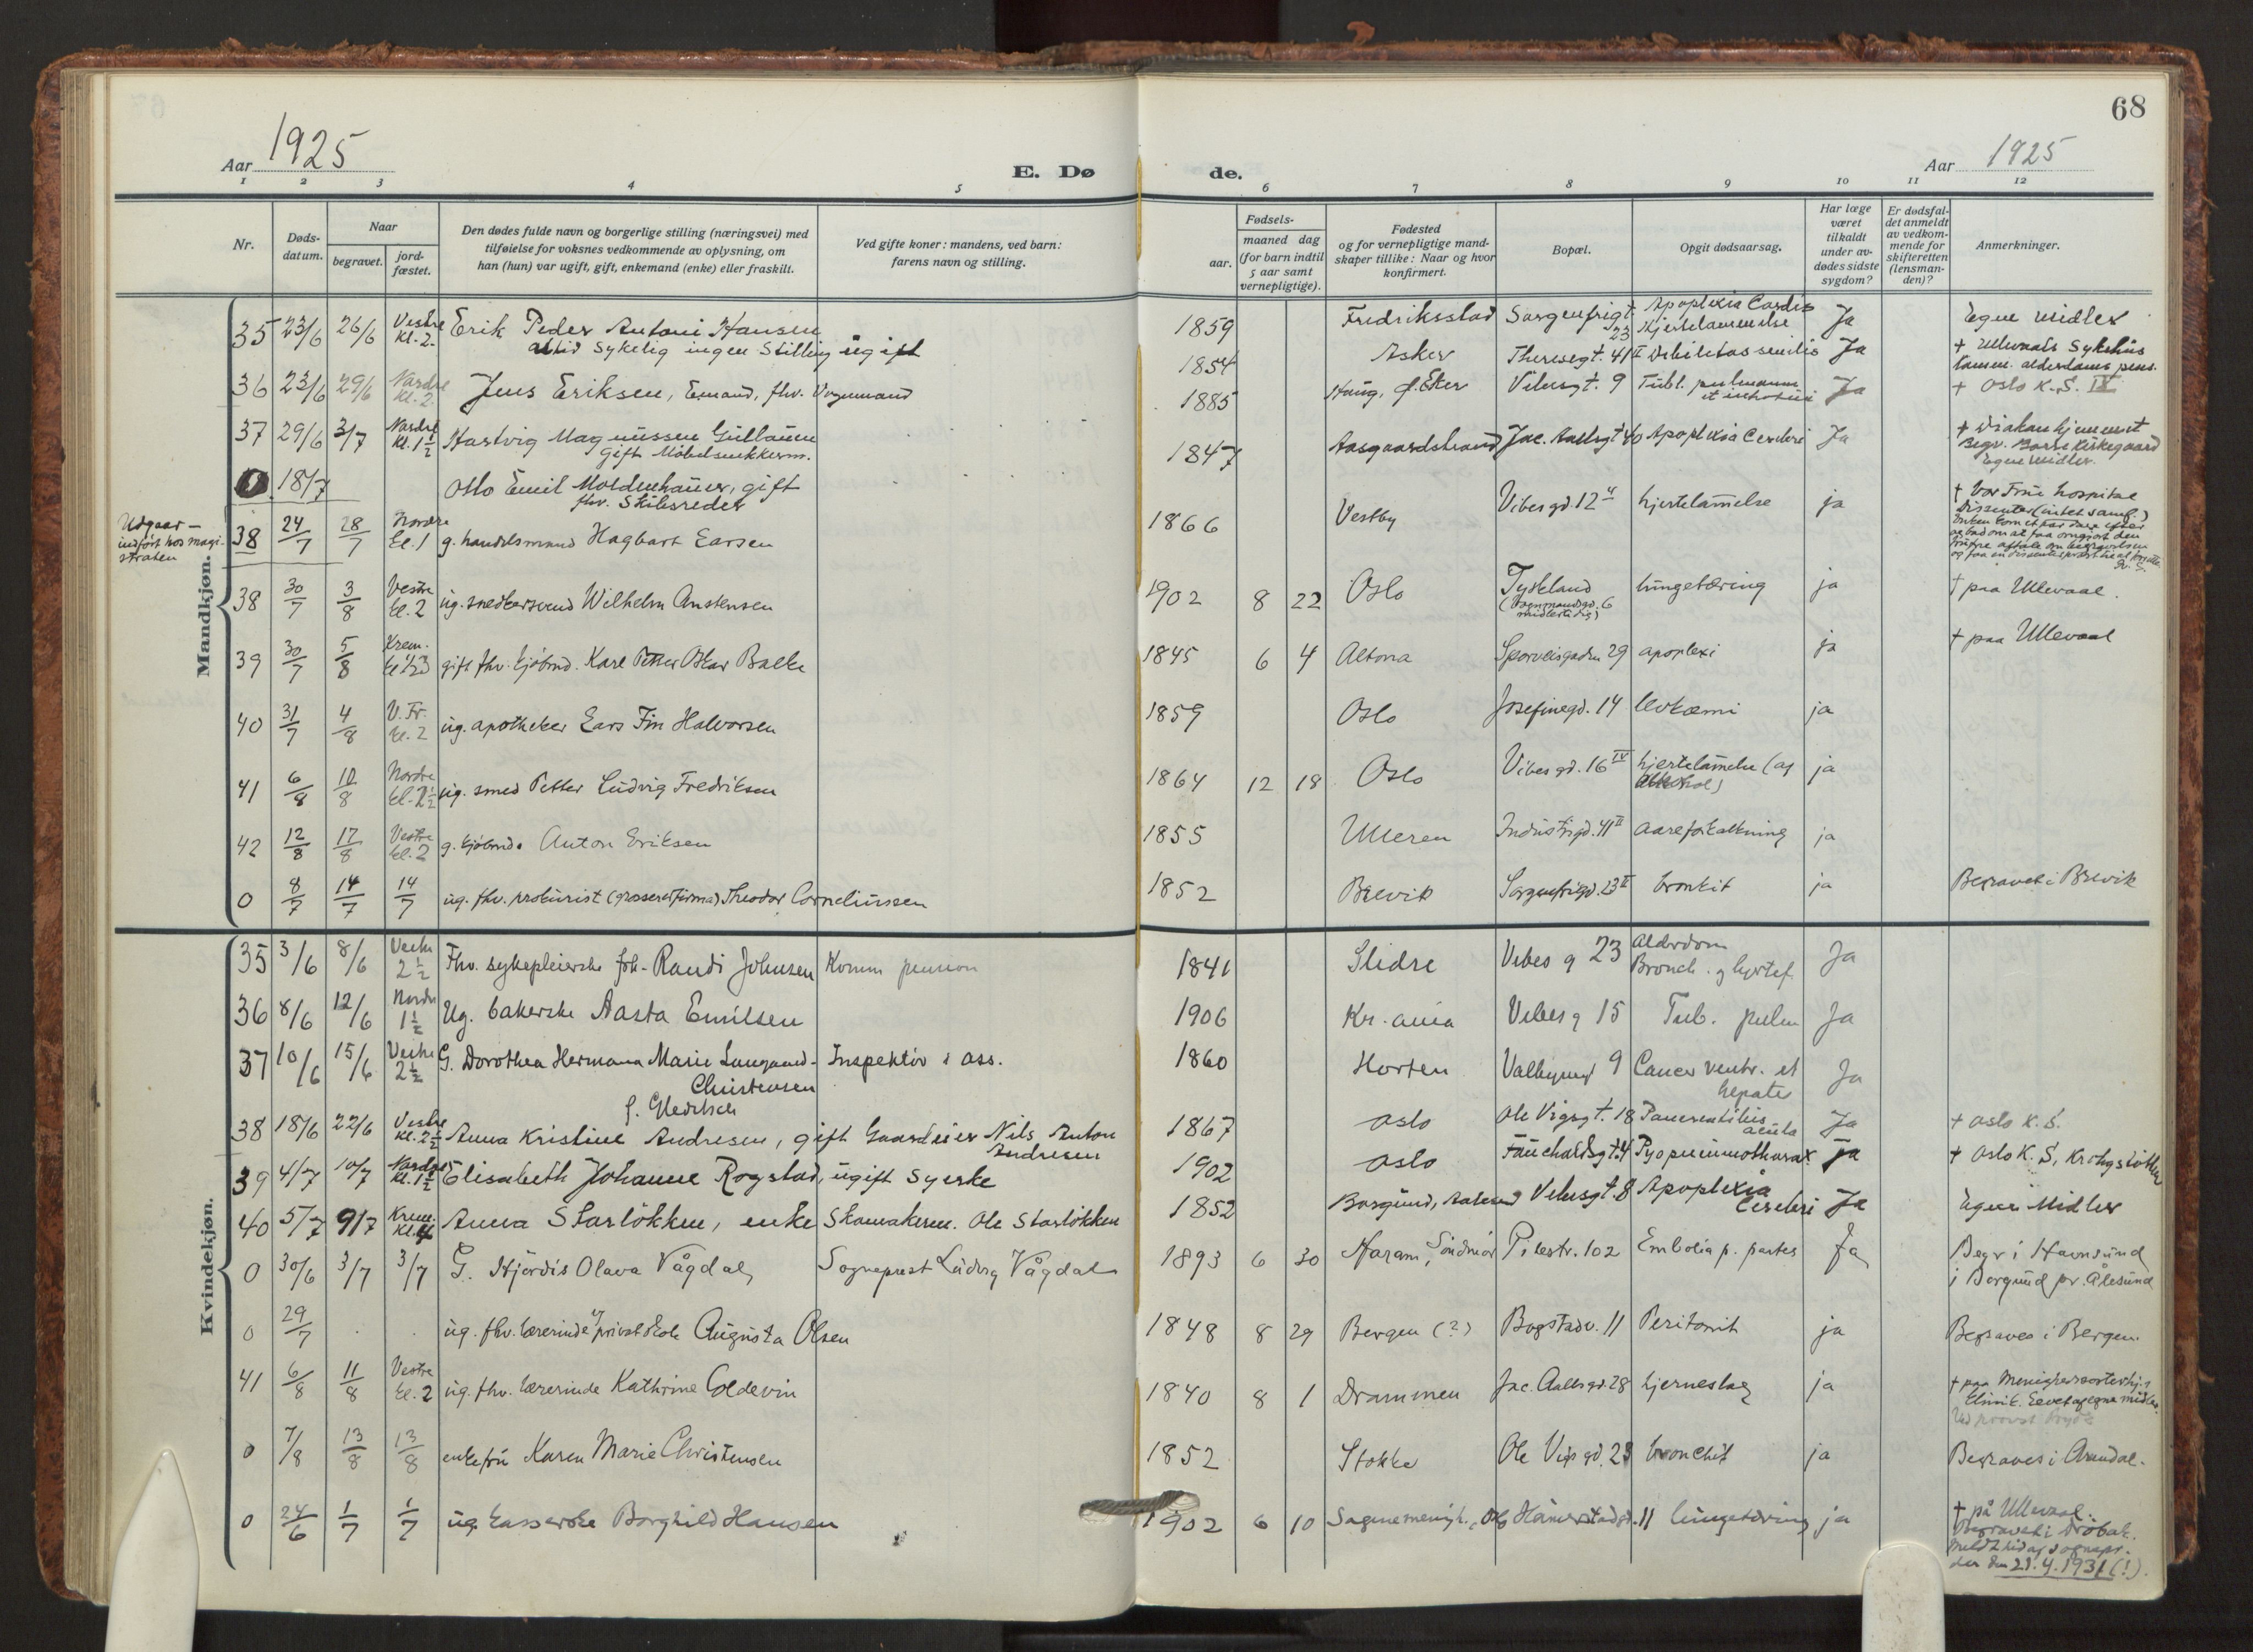 68
Aar 1925
E. Dø de.
Aar 1925
1 2 3 4 5 6 7 8 9 10 11 12
Nr.
Døds-
datum.
Naar
begravet.
jord-
fæstet.
Den dødes fulde navn og borgerlige stilling (næringsvei) med
tilføielse for voksnes vedkommende av oplysning, om
han (hun) var ugift, gift, enkemand (enke) eller fraskilt.
Ved gifte koner: mandens, ved barn:
farens navn og stilling.
Fødsels-
aar.
maaned dag
(for barn indtil
5 aar samt
vernepligtige).
Fødested
og for vernepligtige mand-
skaper tillike: Naar og hvor
konfirmert.
Bopæl.
Opgit dødsaarsag.
Har læge
været
tilkaldt
under av-
dødes sidste
sygdom?
Er dødsfal-
det anmeldt
av vedkom-
mende for
skifteretten
(lensman-
den)?
Anmerkninger.
Mandkjøn.
35 23/6 26/6 Vestre Kl. 2. Erik Peder Antoni Hansen
altid sykelig ingen Stilling ugift
1859 Fredriksstad Sorgenfrigt. 23 Apoplexia Cordis
Hjertelammelse Ja Egne midler
36 23/6 29/6 Nordre Kl. 2 Jens Eriksen, Emand, fhv. Vognmand
1854 Asker Theresegt. 41 II Debilitas senilis Ja + Ullevaals Sykehus
komm. alderdoms pens.
37 29/6 3/7 Nordre Kl. 1½ Hartvig Magnussen Gulbausen
gift Møbelsnekkerm.
1885 Haug, Ø. Eker Vibesgt. 9 Tub. pulmonum
Ja + Oslo K.S. IX
0 18/7 Otto Emil Moldenhauer, gift
fhv. Skibsreder
1847 Aasgaardstrand Jac. Aallsgt 40 Apoplexia Cerebri Ja + Diakonhjemmet
Begr. Borre Kirkegaard
Egne midler.
Udgaar —
indført hos magi-
straten
38 24/7 28/7 Nordre kl. 1 g. handelsmand Hagbart Larsen
1866 Vestby Vibes gd. 12 hjertelammelse ja + Vor Frue hospital
Dissenter (intet samf.)
38 30/7 3/8 Vestre kl. 2 ug. snedkersvend Wilhelm Anstensen
1902 8 22 Oslo Tyskland
(Vognmandsgd. 6
midlertidig)
lungetæring ja † paa Ullevaal.
39 30/7 5/8 Krem. gift fhv. kjøbmd. Karl Petter Oskar Balke
1845 6 4 Altona Sporveisgaden 29 apoplexi ja † paa Ullevaal
40 31/7 4/8 V. Fr. kl. 2 ug. apotheker Lars Fin Halvorsen
1859 Oslo Josefinegd. 14 levkæmi ja
41 6/8 10/8 Nordre ug. smed Petter Ludvig Fredriksen
1864 12 18 Oslo Vibes gd. 16 IV hjertelammelse (af
alkohol) ja
42 12/8 17/8 Vestre kl. 2 g. kjøbmd. Anton Eriksen
1855 Ulleren Industrigd. 41 II aareforkalkning ja
0 8/7 14/7 14/7 ug. fhv. prokurist (grossererfirma) Theodor Corneliussen
1852 Brevik Sorgenfrigd. 23 II bronkit ja Begravet i Brevik
Kvindekjøn.
35 3/6 8/6 Vestre 2½ Fhv. sykepleierske frk. Randi Johnsen Komm pension
1841 Slidre Vibes g 23 Alderdom
Bronch. og hjertef. Ja
36 8/6 12/6 Nordre 1½ Ug. bakerske Aasta Emilsen
1906 Kr.ania Vibes g 15 Tub. pulm Ja
37 10/6 15/6 Vestre 2½ G. Dorothea Hermana Marie Langaard-
Christensen
f. Gleditsch
Inspektør i ass.
1860 Horten Valkyrigt 9 Cancer ventr. et
hepatis Ja
38 18/6 22/6 Vestre Kl. 2½ Anna Kristine Andresen, gift Gaardeier Nils Anton
Andresen
1867 Oslo Ole Vigsgt. 18 Pancreatitis
acuta Ja + Oslo K.S.
39 4/7 10/7 Nordre Kl. 1½ Elisabeth Johanne Rogstad, ugift Syerske
1902 Oslo Fauchaldsgt. 4 Pyopneumothorax Ja + Oslo K.S, Krohgstøtten
40 5/7 9/7 Krem. Kl. 4 Anna Starløkken, enke Skomakerm. Ole Starløkken
1852 Borgund, Aalesund Vibesgt. 8 Apoplexia
Cerebri Ja Egne Midler
0 30/6 3/7 3/7 G. Hjørdis Olava Vågdal, Sogneprest Ludvig Vågdal
1893 6 30 Haram, Søndmør Pilestr. 102 Embolia p. partus Ja Begr i Havnsund
i Borgund pr. Ålesund
0 29/7 ug. fhv. lærerinde v/ privat skole Augusta Olsen
1848 8 29 Bergen (?) Bogstadv. 11 Peritonit ja Begraves i Bergen.
41 6/8 11/8 Vestre kl. 2 ug. fhv. lærerinde Kathrine Coldevin
1840 8 1 Drammen Jac. Aallsgd. 28 hjerneslag ja + paa Menighetssøsterhj.s
klinik. Levet af egne midler.
0 7/8 13/8 13/8 enkefru Karen Marie Christensen
1852 Stokke Ole Vigs gd. 23 bronchit ja Begraves i Arendal.
0 24/6 1/7 1/7 ug. kasserske Borghild Hansen
1902 6 10 Sagene menigh., Oslo Hammerstadgd. 11 lungetæring ja † på Ullevaal.
Begravet i Drøbak.
Meldt hid af sognepr.
der den 21.4.1931 (!).